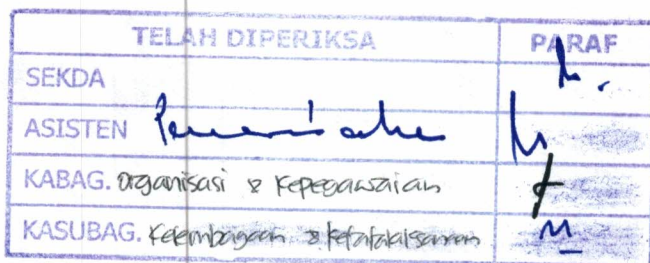 TELAH DIPERIKSA PARAF
SEKDA
ASISTEN Pemerintahan
KABAG. Organisasi & Kepegawaian
KASUBAG. Kelembagaan & Ketatalaksanaan